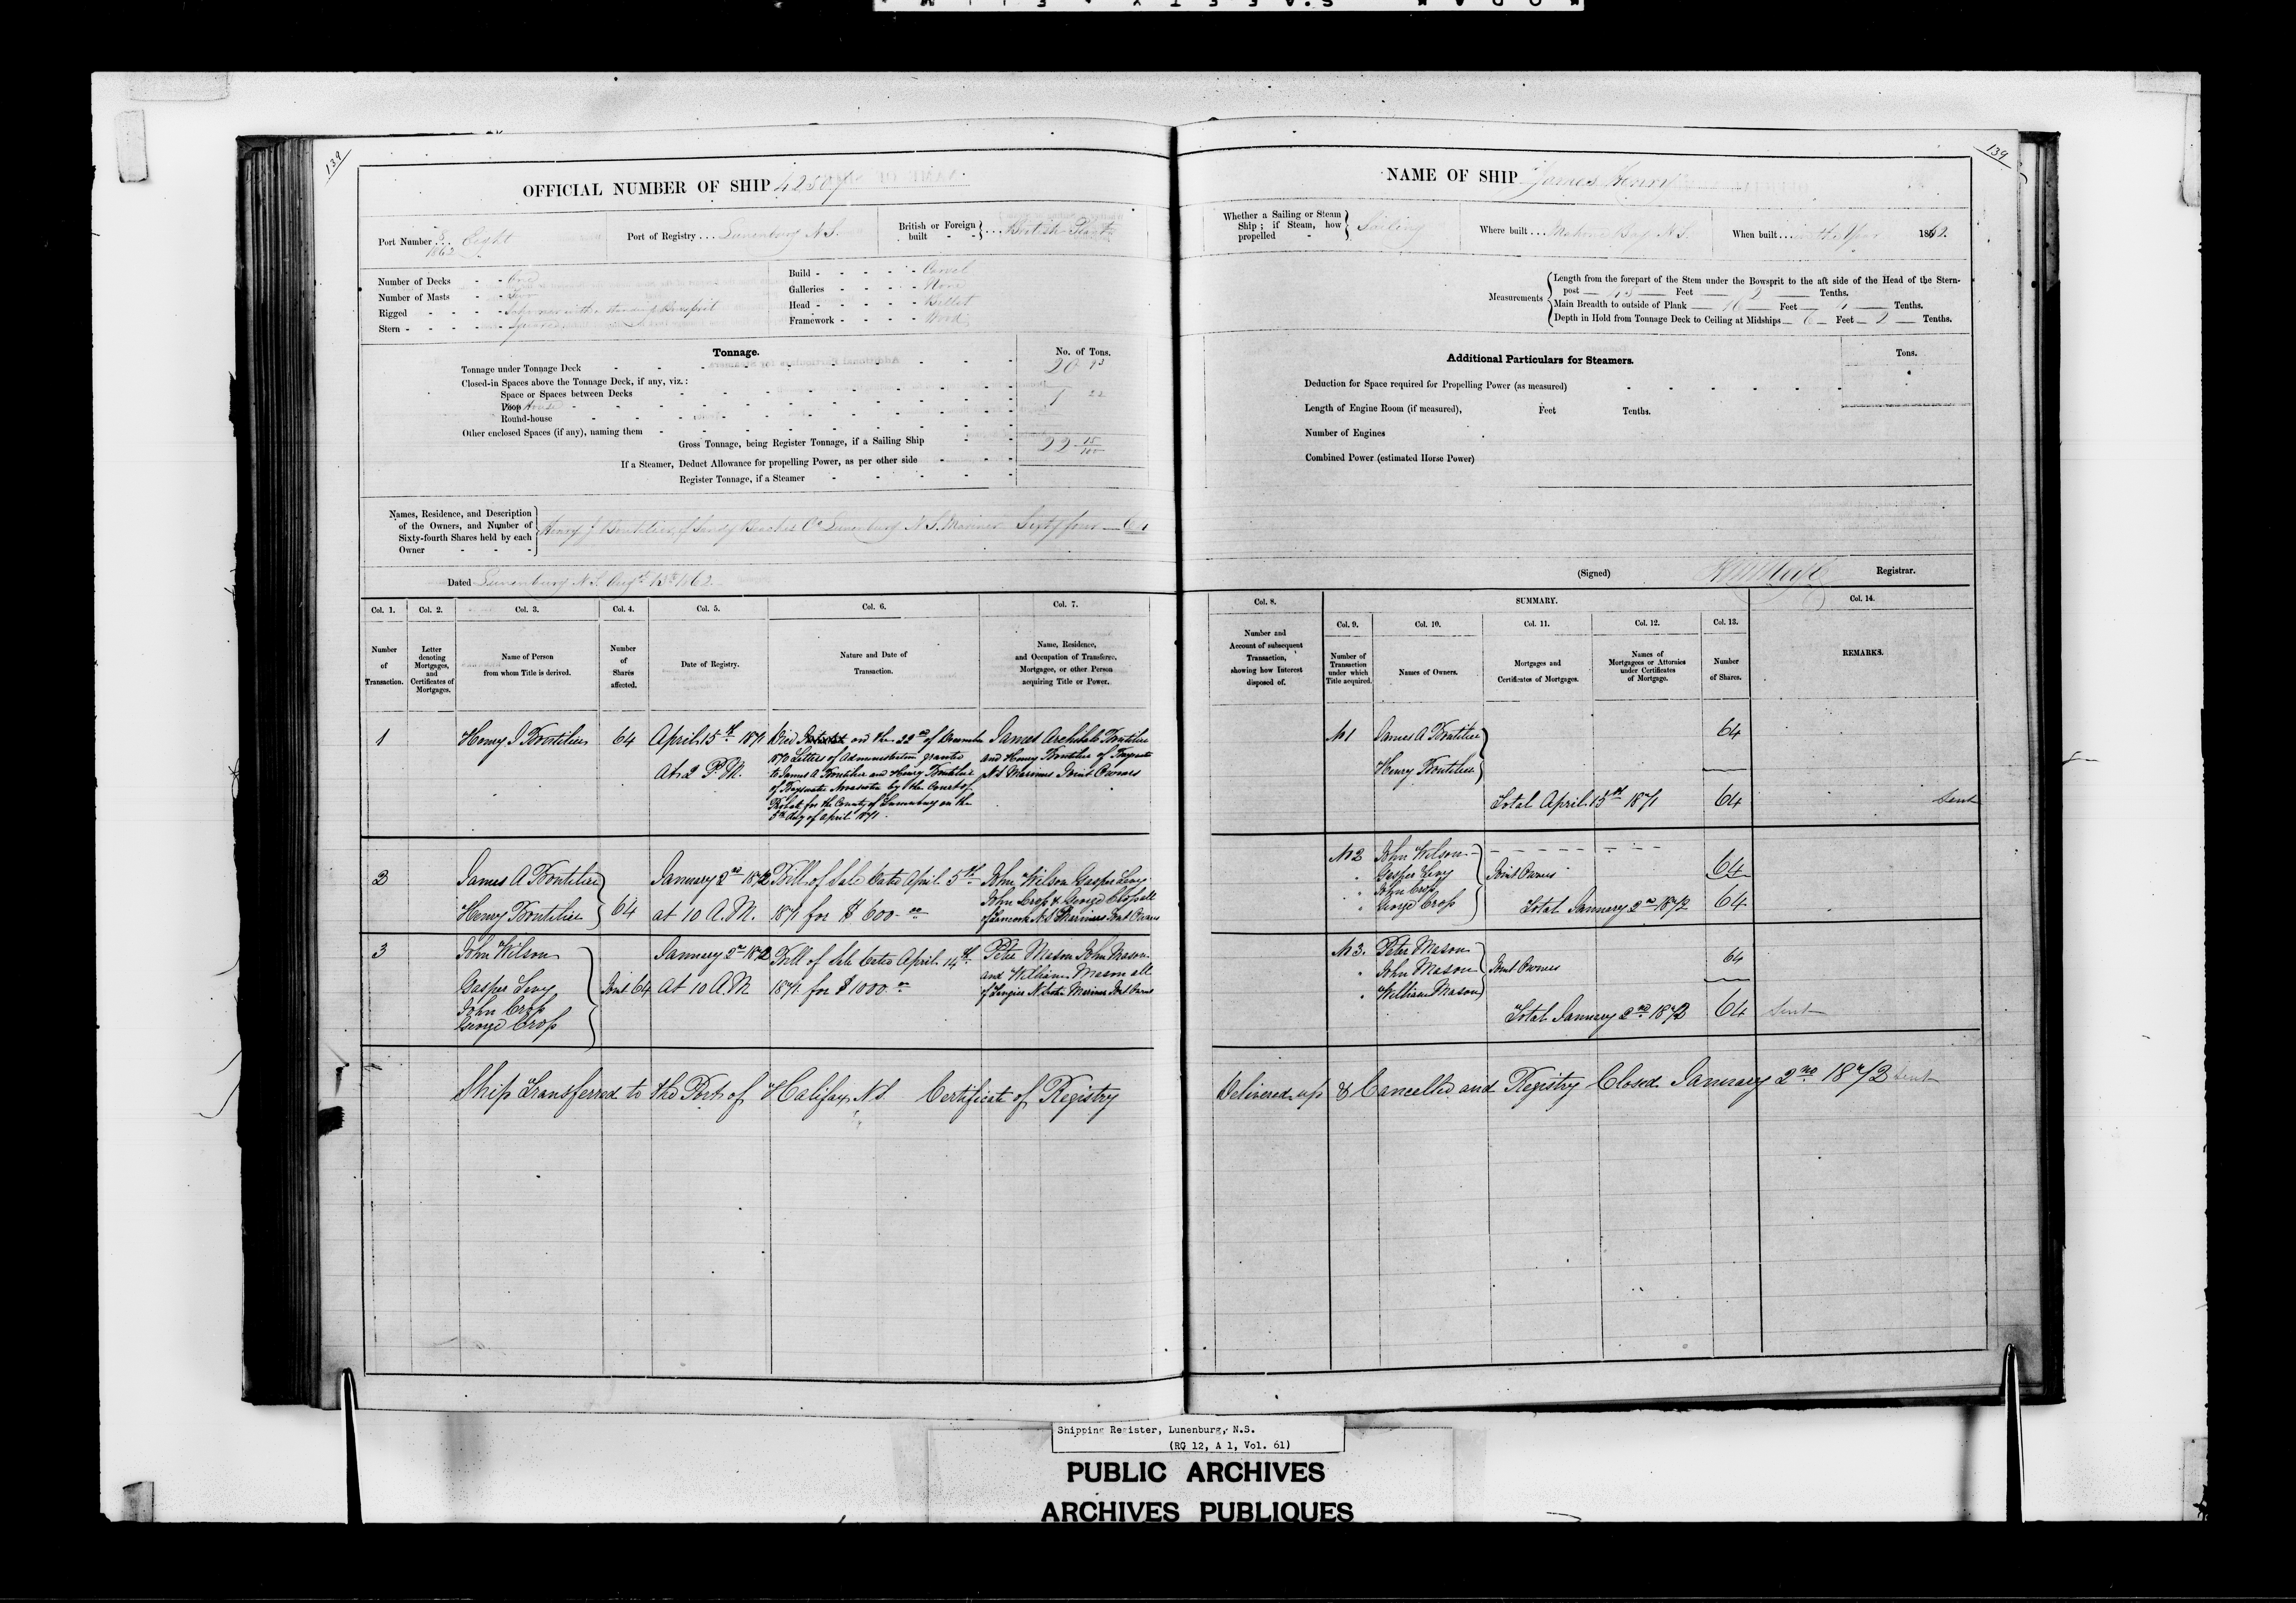 139
OFFICIAL NUMBER OF SHIP 42507
Port Number 8/1862 Eight
Port of Registry ... Lunenburg N.S.
British or Foreign built - - } ... British Plant
Number of Decks - - One
Number of Masts - - Two
Rigged - - - - Schooner with a standing Bowsprit
Stern - - - - Square
Build - - - - - Carvel
Galleries - - - - None
Head - - - - - Billet
Framework - - - - Wood
Tonnage.
No. of Tons.
Tonnage under Tonnage Deck 20 93
Closed-in Spaces above the Tonnage Deck, if any, viz.:
Space or Spaces between Decks
Poop House 1 22
Round-house
Other enclosed Spaces (if any), naming them
Gross Tonnage, being Register Tonnage, if a Sailing Ship 22 15/100
If a Steamer, Deduct Allowance for propelling Power, as per other side
Register Tonnage, if a Steamer
Names, Residence, and Description
of the Owners, and Number of
Sixty-fourth Shares held by each
Owner - - -
Henry J Boutilier of Sandy Beaches Co Lunenburg N.S. Mariner Sixty four — 64
Dated Lunenburg N.S. Augt 13th 1862
Col. 1. Col. 2. Col. 3. Col. 4. Col. 5. Col. 6. Col. 7.
Number of Transaction.
Letter denoting Mortgages, and Certificates of Mortgages.
Name of Person from whom Title is derived.
Number of Shares affected.
Date of Registry.
Nature and Date of Transaction.
Name, Residence, and Occupation of Transferee, Mortgagee, or other Person acquiring Title or Power.
1
Henry J Boutilier
64
April 15th 1871
At 2 P.M.
Died on the 22nd of December
1870 Letters of Administration granted
to James A Boutilier and Henry Boutilier
of Bayswater Novascotia by the Court of
Probate for the County of Lunenburg on the
5th day of April 1871.
James Archibald Boutilier
and Henry Boutilier of Bayswater
N.S Mariners Joint Owners
2
James A Boutilier
Henry Boutilier
64
January 2nd 1872
at 10 A.M.
Bill of Sale Dated April 5th
1871 for $ 600.00
John Wilson Gasper Levy
John Crop & George Crop all
of N.S Mariners Joint Owners
3
John Wilson
Gasper Levy
John Crop
George Crop
Joint 64
January 2nd 1872
At 10 A.M
Bill of Sale Dated April 14th
1871 for $ 1000.00
Peter Mason John Mason
and William Mason all
of Tangier N.Scotia Mariners Joint Owners
Ship Transferred to the Port of Halifax N.S. Certificate of Registry
139
NAME OF SHIP James Henry
Whether a Sailing or Steam Ship; if Steam, how propelled - } Sailing
Where built ... Mahone Bay N.S.
When built ... 1862.
Measurements
Length from the forepart of the Stem under the Bowsprit to the aft side of the Head of the Stern-
post — Feet — 2 — Tenths.
Main Breadth to outside of Plank — 16 — Feet — Tenths.
Depth in Hold from Tonnage Deck to Ceiling at Midships — 6 — Feet — 2 — Tenths.
Additional Particulars for Steamers.
Tons.
Deduction for Space required for Propelling Power (as measured)
Length of Engine Room (if measured), Feet Tenths.
Number of Engines
Combined Power (estimated Horse Power)
(Signed) Registrar.
Col. 8.
SUMMARY.
Col. 9. Col. 10. Col. 11. Col. 12. Col. 13. Col. 14.
Number and Account of subsequent Transaction, showing how Interest disposed of.
Number of Transaction under which Title acquired.
Names of Owners.
Mortgages and Certificates of Mortgages.
Names of Mortgagees or Attornies under Certificates of Mortgage.
Number of Shares.
REMARKS.
No 1
James A Boutilier
Henry Boutilier
64
Total April 15th 1871 64 Sent
No 2
John Wilson
Gasper Levy
John Crop
George Crop
Joint Owners
64
Total January 2nd 1872 64
No 3.
Peter Mason
John Mason
William Mason
Joint Owners
64
Total January 2nd 1872 64 Sent
Delivered up & Cancelled and Registry Closed January 2nd 1872 Sent
Shipping Register, Lunenburg, N.S.
(RG 12, A 1, Vol. 61)
PUBLIC ARCHIVES
ARCHIVES PUBLIQUES